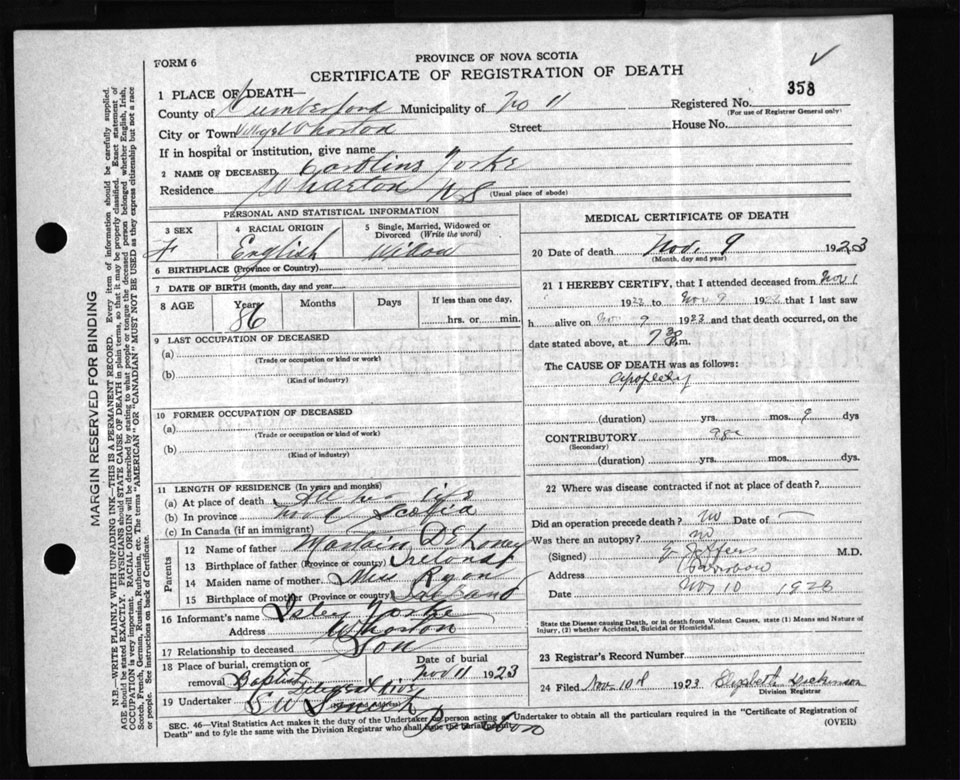 FORM 6
PROVINCE OF NOVA SCOTIA
CERTIFICATE OF REGISTRATION OF DEATH
358
1 PLACE OF DEATH—
County of Cumberford Municipality of No 11 Registered No.
(For use of Registrar General only)
City or Town Street House No.
If in hospital or institution, give name
2 NAME OF DECEASED Yorke
Residence Wharton N S (Usual place of abode)
PERSONAL AND STATISTICAL INFORMATION
3 SEX F
4 RACIAL ORIGIN English
5 Single, Married, Widowed or Divorced (Write the word) Widow
6 BIRTHPLACE (Province or Country)
7 DATE OF BIRTH (month, day and year)
8 AGE Years 86 Months Days If less than one day, hrs. or min.
9 LAST OCCUPATION OF DECEASED
(a)
(Trade or occupation or kind or work)
(b)
(Kind of industry)
10 FORMER OCCUPATION OF DECEASED
(a)
(Trade or occupation or kind of work)
(b)
(Kind of industry)
11 LENGTH OF RESIDENCE (In years and months)
(a) At place of death All her life
(b) In province Nova Scotia
(c) In Canada (if an immigrant)
Parents
12 Name of father
13 Birthplace of father (Province or country)
14 Maiden name of mother Miss Ryan
15 Birthplace of mother (Province or country)
16 Informant's name Yorke
Address Wharton
17 Relationship to deceased Son
18 Place of burial, cremation or removal Baptist
Date of burial Nov 11 1923
19 Undertaker
MEDICAL CERTIFICATE OF DEATH
20 Date of death Nov. 9 1923
(Month, day and year)
21 I HEREBY CERTIFY, that I attended deceased from Nov 1
192 to Nov 9 192 that I last saw
h alive on Nov 9 1923 and that death occurred, on
date stated above, at 7 m.
The CAUSE OF DEATH was as follows:
Apoplexy
(duration) yrs. mos. 9 dys
CONTRIBUTORY
(Secondary)
(duration) yrs. mos. dys.
22 Where was disease contracted if not at place of death?
Did an operation precede death? no Date of —
Was there an autopsy? no
(Signed) M.D.
Address
Date Nov 10 192
State the Disease causing Death, or in death from Violent Causes, state (1) Means and Nature of
Injury, (2) whether Accidental, Suicidal or Homicidal.
23 Registrar's Record Number
24 Filed Nov. 10 1923 Elizabeth Dickinson
Division Registrar
SEC. 46—Vital Statistics Act makes it the duty of the Undertaker or person acting as Undertaker to obtain all the particulars required in the "Certificate of Registration of
Death" and to fyle the same with the Division Registrar who shall issue the burial permit.
(OVER)
MARGIN RESERVED FOR BINDING
N.B.—WRITE PLAINLY WITH UNFADING INK—THIS IS A PERMANENT RECORD. Every item of information should be carefully supplied.
AGE should be stated EXACTLY. PHYSICIANS should STATE CAUSE OF DEATH in plain terms, so that it may be properly classified. Exact statement of
OCCUPATION is very important. RACIAL ORIGIN will be described by stating to what people or tongue the deceased person belonged whether English, Irish,
Scotch, French, German, Russian, Ruthenian, etc. The terms "AMERICAN" OR "CANADIAN" MUST NOT BE USED as they express citizenship but not a race
or people. See instructions on back of Certificate.